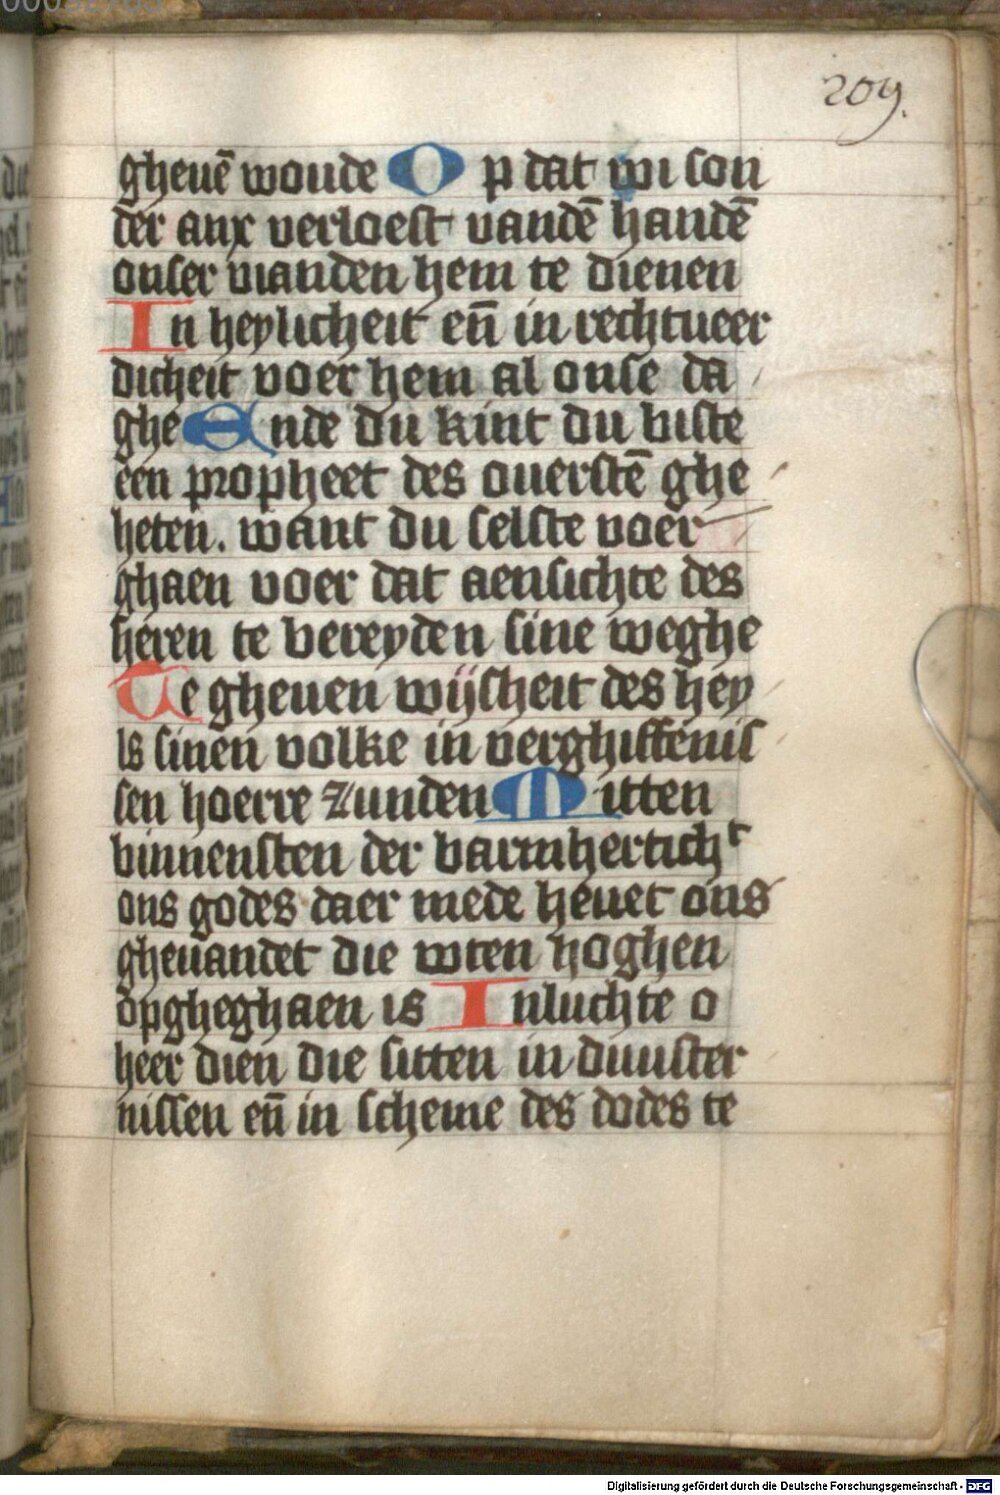 209.
gheuē woude Op dat wi son
der anx verloest vandē handē
onser vianden hem te dienen
In heylicheit eñ in rechtueer
dicheit voer hem al onse da
ghe Ende du kint du biste
een propheet des ouerstē ghe
heten. want du selste voer
ghaen voer dat aensichte des
heren te bereyden sine weghe
Te gheuen wijsheit des hey
ls sinen volke in verghiffenis
sen hoerre zunden Mitten
binnensten der barmherticht
ons godes daer mede heuet ons
gheuandet die wten hoghen
opgheghaen is Inluchte o
heer dien die sitten in duuster
nissen eñ in scheme des dodes te
Digitalisierung gefördert durch die Deutsche Forschungsgemeinschaft - DFG